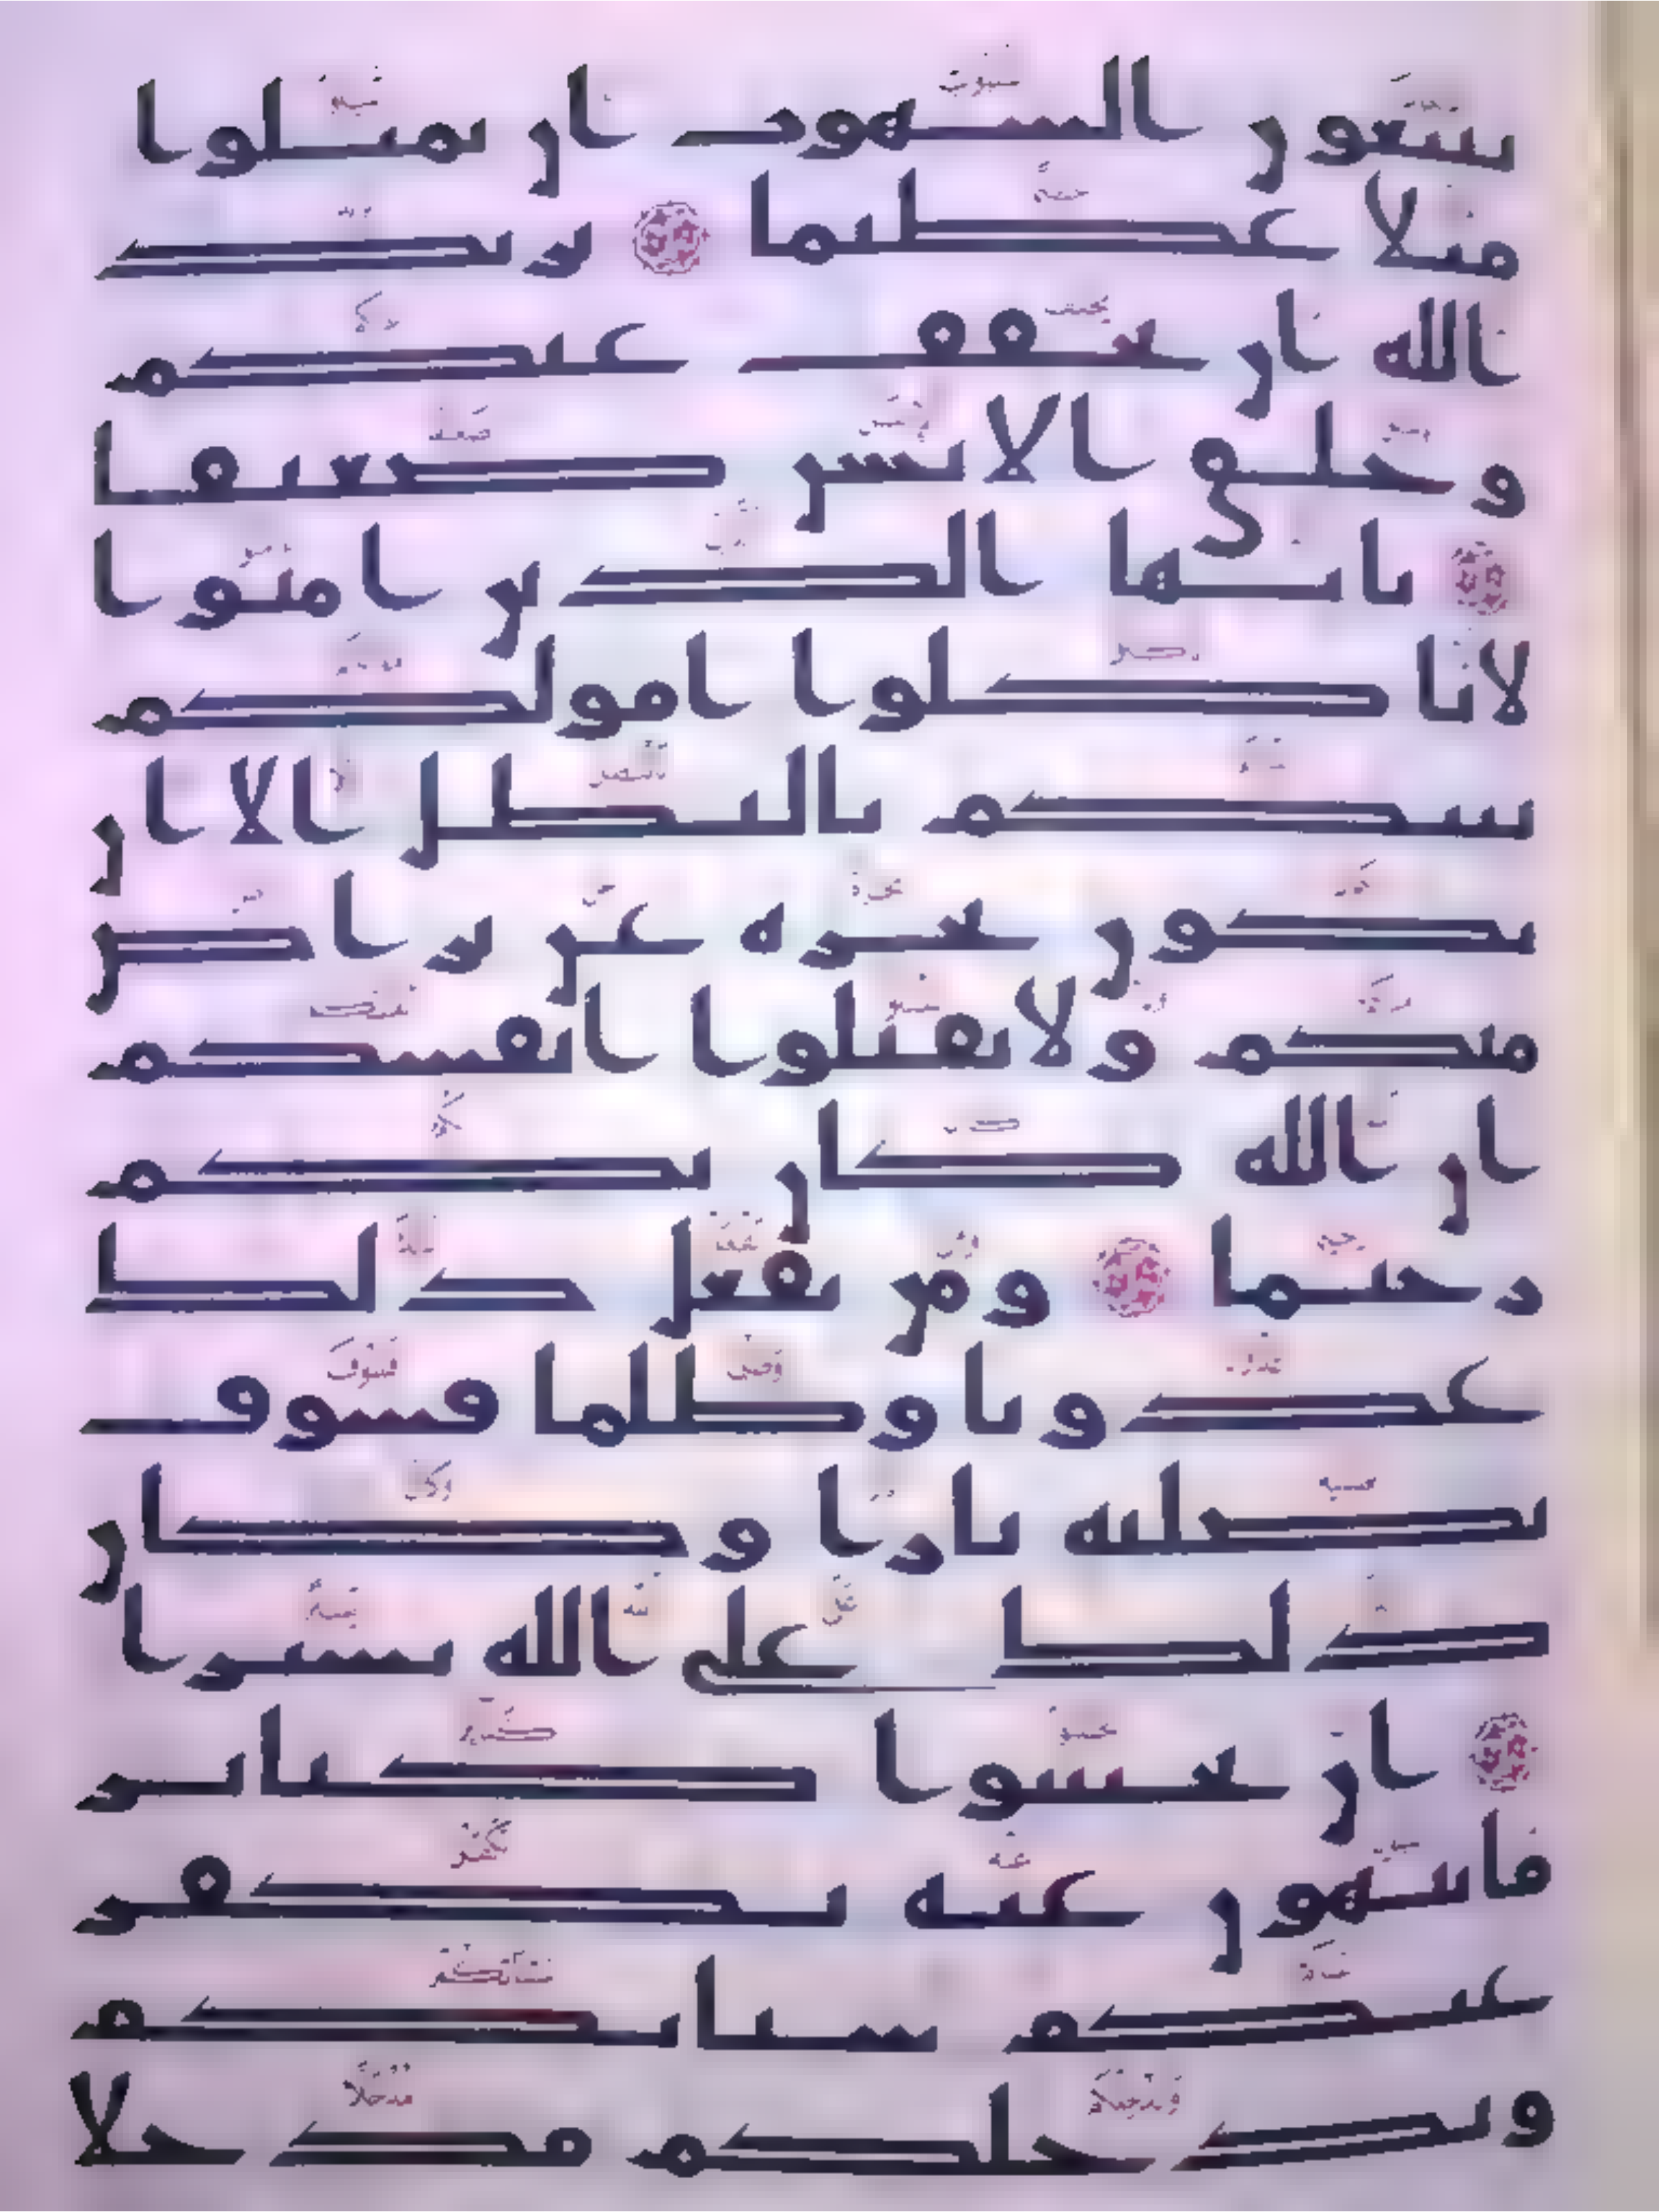 يتبعون الشهوت ان تميلوا
ميلا عظيما يريد
الله ان يخفف عنكم
وخلق الانسن ضعيفا
يايها الذين امنوا
لا تاكلوا امولكم
بينكم بالبطل الا ان
تكون تجرة عن تراض
منكم ولا تقتلوا انفسكم
ان الله كان بكم
رحيما ومن يفعل ذلك
عدونا وظلما فسوف
نصليه نارا وكان
ذلك على الله يسيرا
ان تجتنبوا كبائر
ما تنهون عنه نكفر
عنكم سياتكم
وندخلكم مدخلا